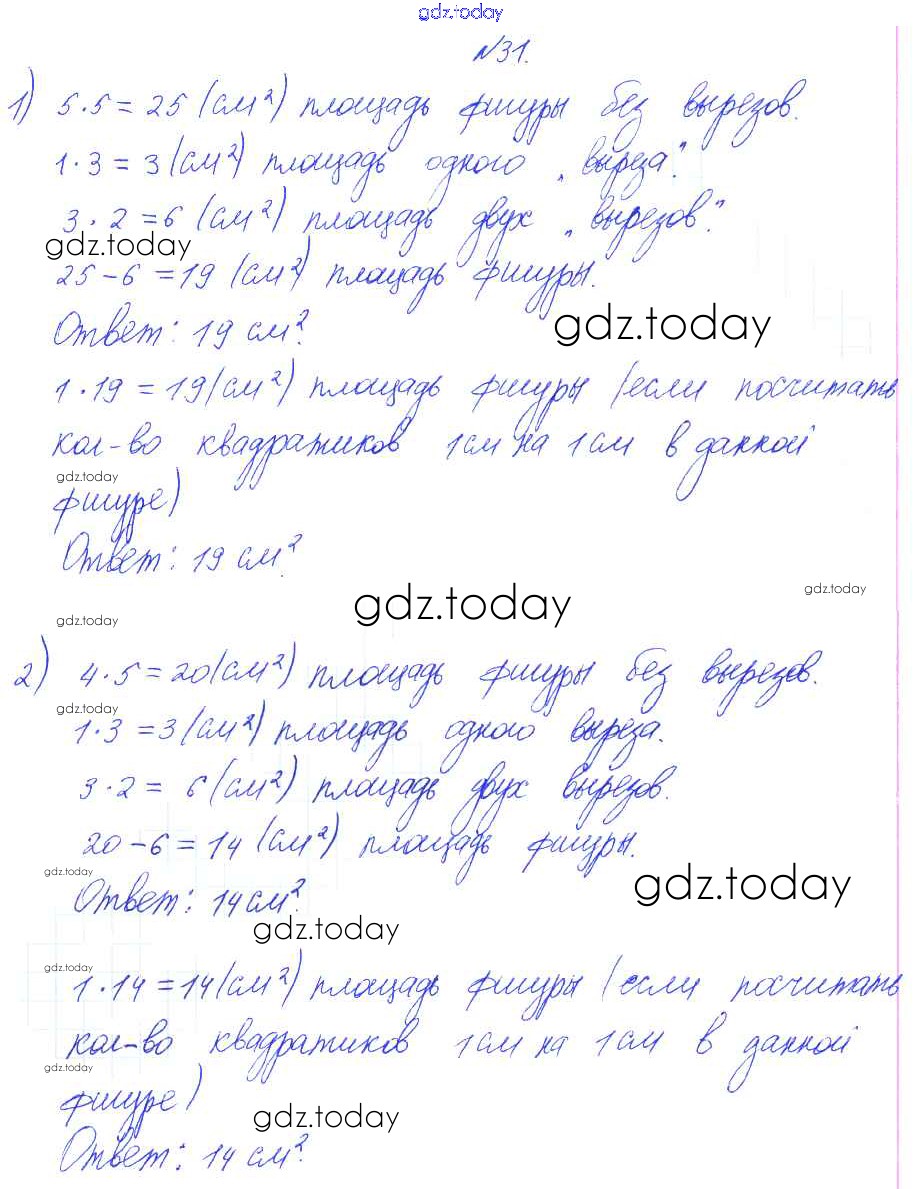 gdz.today
№31.
1) 5·5=25 (см²) площадь фигуры без вырезов.
1·3=3 (см²) площадь одного „выреза".
3·2=6 (см²) площадь двух „вырезов".
gdz.today
25-6=19 (см²) площадь фигуры.
gdz.today
Ответ: 19 см².
1·19=19(см²) площадь фигуры (если посчитать
кол-во квадратиков 1см на 1см в данной
gdz.today
фигуре)
Ответ: 19 см².
gdz.today
gdz.today
gdz.today
2) 4·5=20(см²) площадь фигуры без вырезов.
gdz.today
1·3=3(см²) площадь одного выреза.
3·2= 6(см²) площадь двух вырезов.
20-6=14(см²) площадь фигуры.
gdz.today
gdz.today
Ответ: 14см².
gdz.today
gdz.today
1·14=14(см²) площадь фигуры (если посчитать
кол-во квадратиков 1см на 1см в данной
gdz.today
фигуре)
gdz.today
Ответ: 14 см².